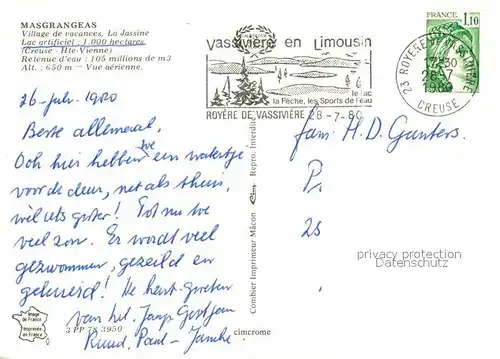 MASGRANGEAS
Village de vacances, La Jassine
Lac artificiel : 1.000 hectares
(Creuse - Hte-Vienne)
Retenue d'eau : 105 millions de m3
Alt. : 650 m — Vue aérienne.
Vassivière en Limousin
le lac
la Pêche, les Sports de l'eau
ROYÈRE DE VASSIVIÈRE 28-7-80
FRANCE 1,10
23 ROYERE DE VASSIVIERE
17H30
28-7
1980
CREUSE
26 juli 1980
Beste allemaal,
Ook hier hebben we een watertje
voor de deur, net als thuis,
wel iets groter! Tot nu toe
veel zon. Er wordt veel
gezwommen, gezeild en
geluierd! De hart. groeten
van hel. Jaap
Ruud, Paul - Janneke!
fam. H. D. Gunters.
25
Combier Imprimeur Mâcon
Repro. Interdite
privacy protection
Datenschutz
Image de France
Imprimée en France
3 PP 78 3950
cimcrome